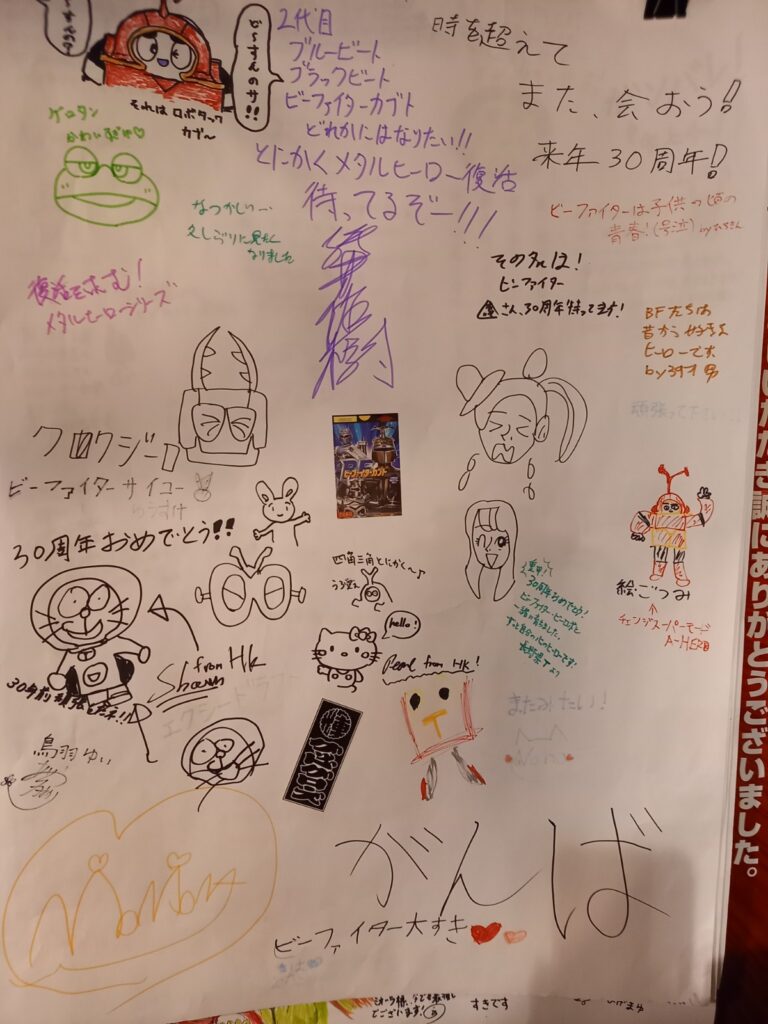 ど〜すんのサ!!
それは ロボタック
カブ〜
2代目
ブルービート
ブラックビート
ビーファイターカブト
どれかにはなりたい!!
とにかくメタルヒーロー復活
待ってるぞー!!!
時を超えて
また、会おう!
来年30周年!
ゲロタン
かわいすぎや♡
なつかしい…
久しぶりに見たく
なりました
ビーファイターは子供の頃の
青春!(号泣)
復活を求む!
メタルヒーローシリーズ
その名は!
ビーファイター
さん、30周年待ってます!
BFたちは
昔から好きな
ヒーローです
頑張って下さい
クロクジーロ
ビーファイターサイコー
30周年おめでとう!!
ビーファイターカブト
四角三角とにかく〜♪
30周年おめでとう!
絵ごつみ
チェンジスーパーモード
A-HERO
hello!
from HK
Shawn
Pearl from HK!
30年前頑張
またみたい!
Nono
鳥羽ゆい
がんば
ビーファイター大すき
いただき誠にありがとうございました。
でございます!
すきです